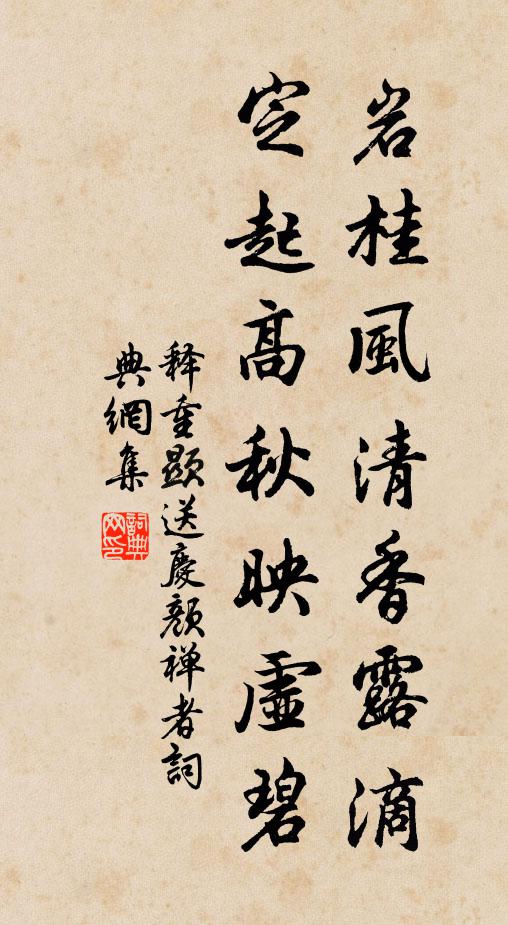 岩桂風清香露滴
定起高秋映虛碧
释重顯送慶顏禅者詞
典網集
詞典
网印